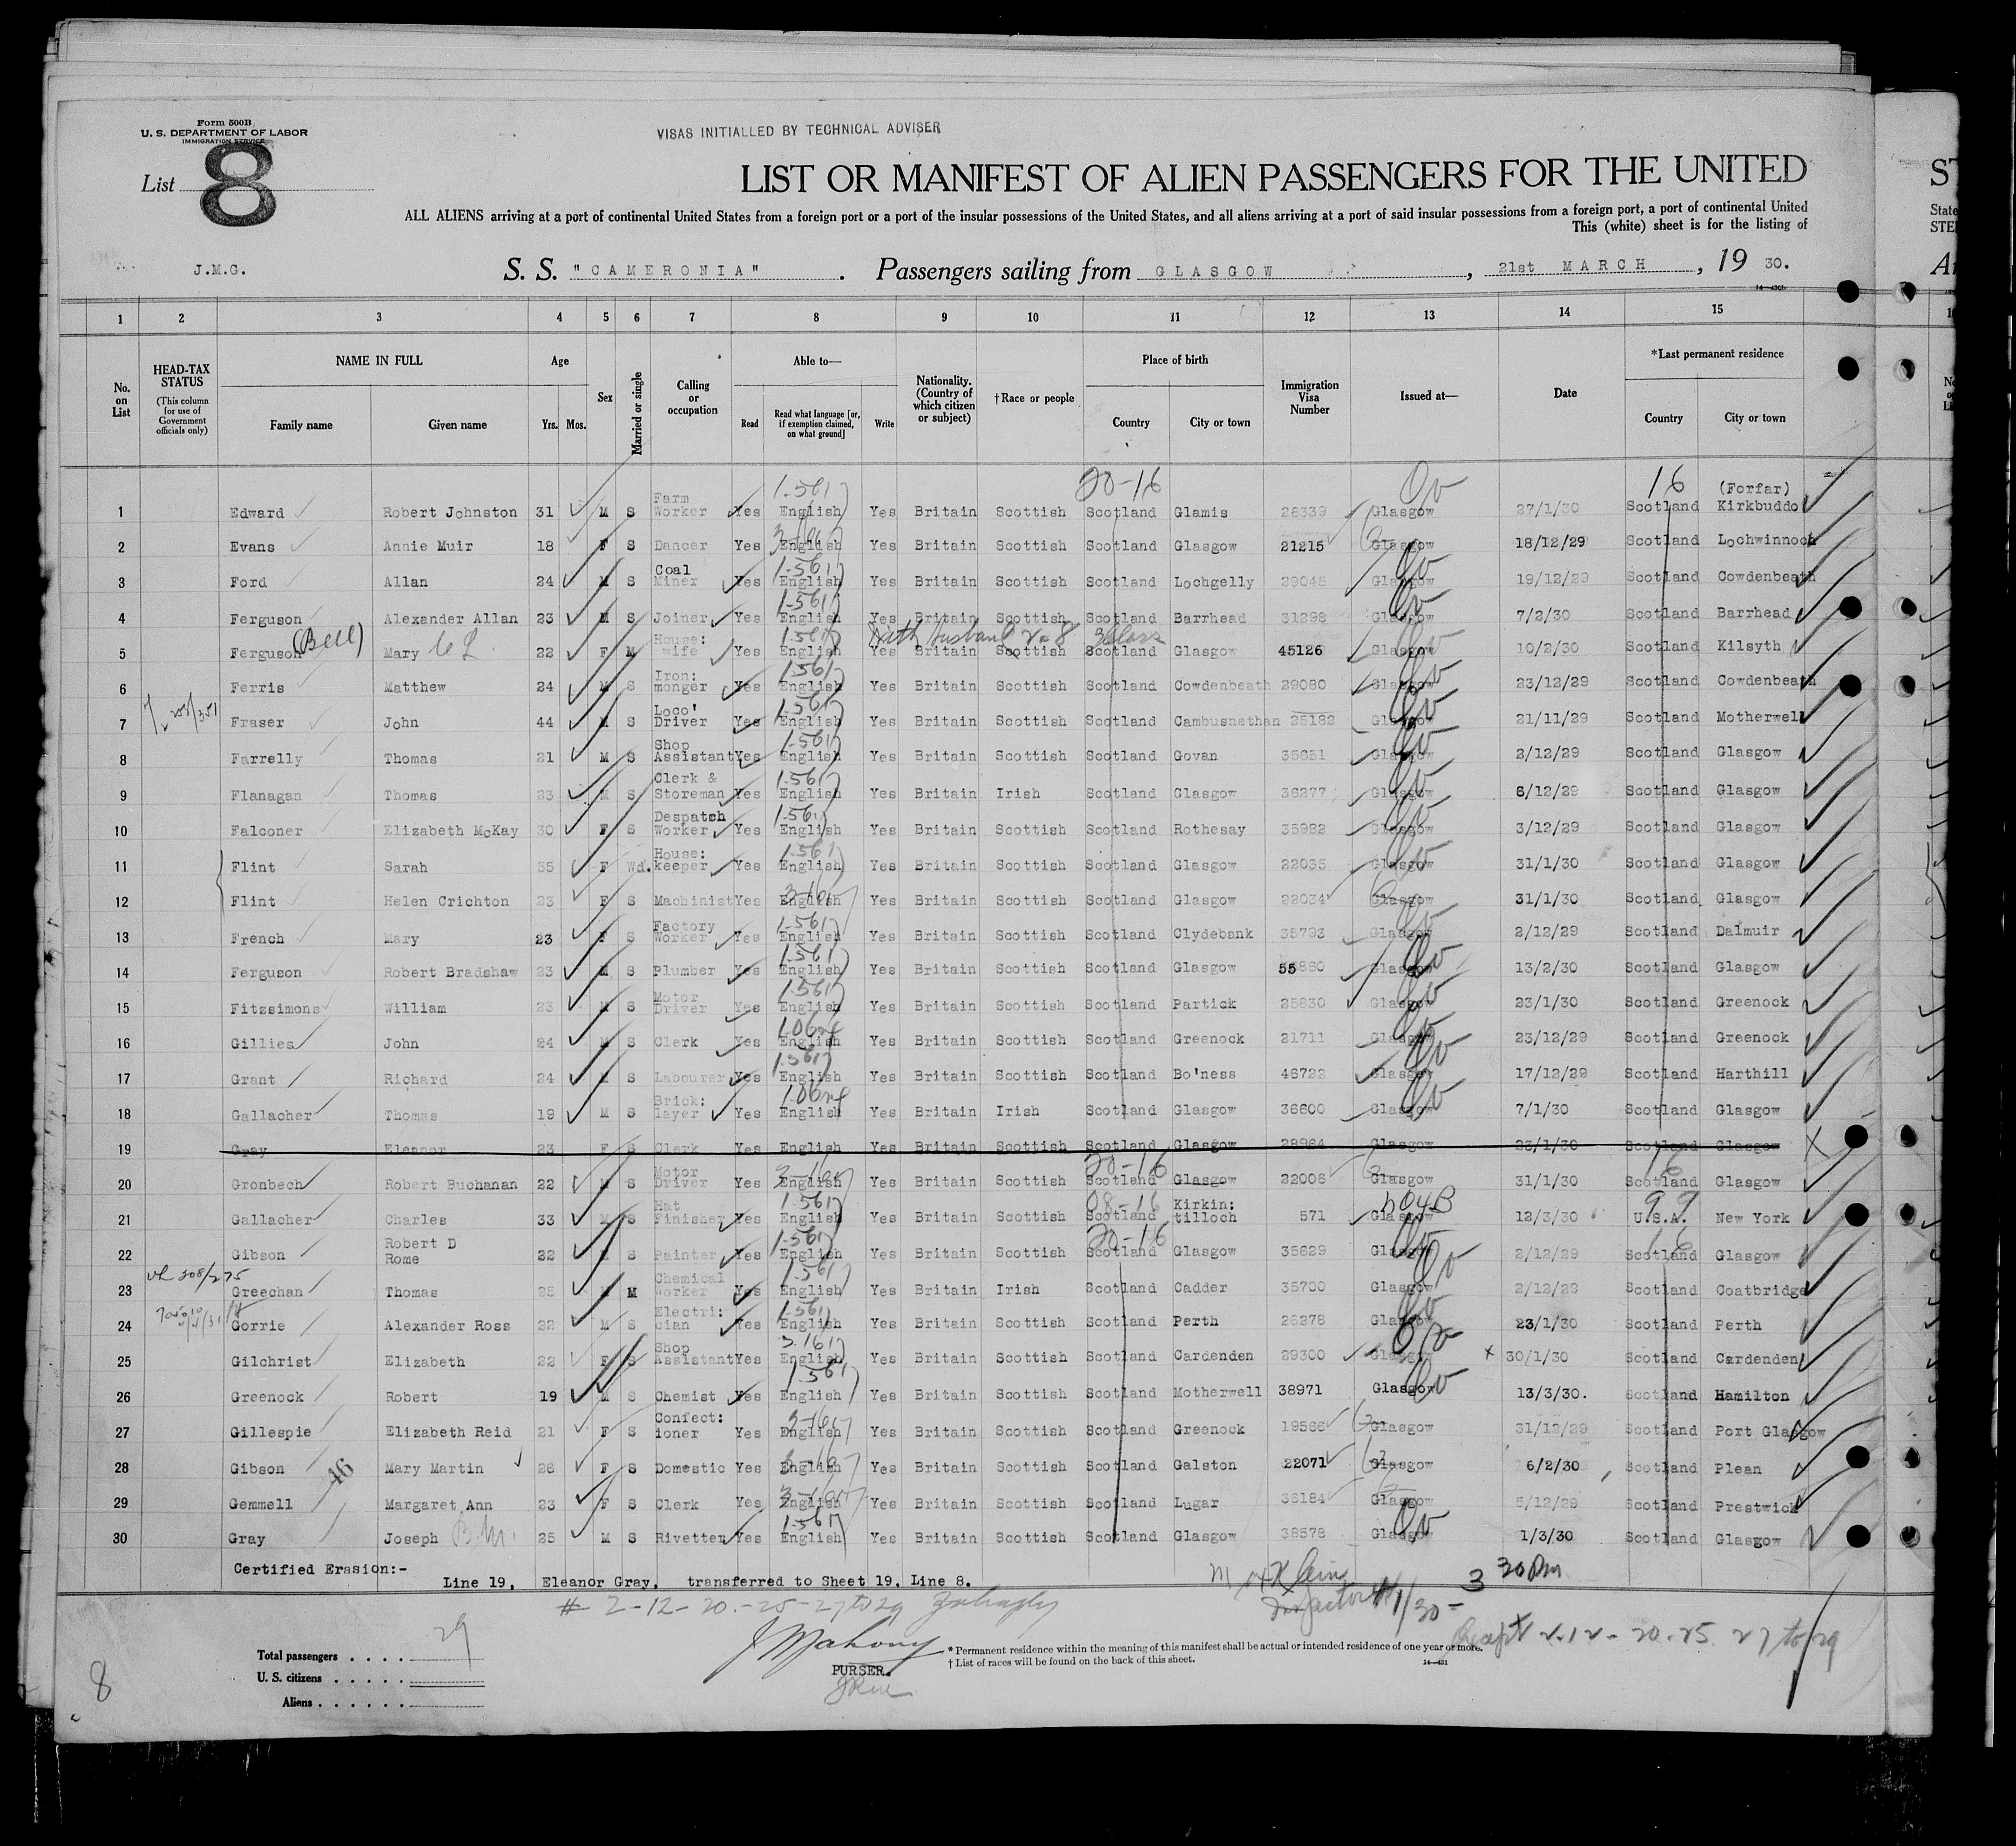 Form 500B
U. S. DEPARTMENT OF LABOR
IMMIGRATION SERVICE
VISAS INITIALLED BY TECHNICAL ADVISER
List 8
LIST OR MANIFEST OF ALIEN PASSENGERS FOR THE UNITED
ALL ALIENS arriving at a port of continental United States from a foreign port or a port of the insular possessions of the United States, and all aliens arriving at a port of said insular possessions from a foreign port, a port of continental United
This (white) sheet is for the listing of
J.M.G. S. S. "CAMERONIA". Passengers sailing from GLASGOW, 21st MARCH, 19 30.
1 2 3 4 5 6 7 8 9 10 11 12 13 14 15
No. on List HEAD-TAX STATUS (This column for use of Government officials only) NAME IN FULL Family name Given name Age Yrs. Mos. Sex Married or single Calling or occupation Able to— Read Read what language [or, if exemption claimed, on what ground] Write Nationality. (Country of which citizen or subject) †Race or people Place of birth Country City or town Immigration Visa Number Issued at— Date *Last permanent residence Country City or town
20-16 16
1 Edward Robert Johnston 31 M S Farm Worker Yes 1-561 English Yes Britain Scottish Scotland Glamis 26339 Glasgow 27/1/30 Scotland (Forfar) Kirkbuddo
2 Evans Annie Muir 18 F S Dancer Yes English Yes Britain Scottish Scotland Glasgow 21215 Glasgow 18/12/29 Scotland Lochwinnoch
3 Ford Allan 24 M S Coal Miner Yes 1-561 English Yes Britain Scottish Scotland Lochgelly 29045 Glasgow 19/12/29 Scotland Cowdenbeath
4 Ferguson Alexander Allan 23 M S Joiner Yes 1-561 English Yes Britain Scottish Scotland Barrhead 31298 Glasgow 7/2/30 Scotland Barrhead
With husband
5 Ferguson (Bell) Mary 22 F M House: wife Yes 1-561 English Yes Britain Scottish Scotland Glasgow 45126 Glasgow 10/2/30 Scotland Kilsyth
6 Ferris Matthew 24 M S Iron: monger Yes 1-561 English Yes Britain Scottish Scotland Cowdenbeath 29080 Glasgow 23/12/29 Scotland Cowdenbeath
7 Fraser John 44 M S Loco' Driver Yes 1-561 English Yes Britain Scottish Scotland Cambusnethan 25182 Glasgow 21/11/29 Scotland Motherwell
8 Farrelly Thomas 21 M S Shop Assistant Yes 1-561 English Yes Britain Scottish Scotland Govan 35651 Glasgow 2/12/29 Scotland Glasgow
9 Flanagan Thomas 23 M S Clerk & Storeman Yes 1-561 English Yes Britain Irish Scotland Glasgow 36277 Glasgow 6/12/29 Scotland Glasgow
10 Falconer Elizabeth McKay 30 F S Despatch Worker Yes 1-561 English Yes Britain Scottish Scotland Rothesay 35982 Glasgow 3/12/29 Scotland Glasgow
11 Flint Sarah 55 F Wd. House: keeper Yes 1-561 English Yes Britain Scottish Scotland Glasgow 22035 Glasgow 31/1/30 Scotland Glasgow
12 Flint Helen Crichton 23 F S Machinist Yes English Yes Britain Scottish Scotland Glasgow 22034 Glasgow 31/1/30 Scotland Glasgow
13 French Mary 23 F S Factory Worker Yes 1-561 English Yes Britain Scottish Scotland Clydebank 35793 Glasgow 2/12/29 Scotland Dalmuir
14 Ferguson Robert Bradshaw 23 M S Plumber Yes 1-561 English Yes Britain Scottish Scotland Glasgow 55860 Glasgow 13/2/30 Scotland Glasgow
15 Fitzsimons William 23 M S Motor Driver Yes 1-561 English Yes Britain Scottish Scotland Partick 25830 Glasgow 23/1/30 Scotland Greenock
16 Gillies John 24 M S Clerk Yes English Yes Britain Scottish Scotland Greenock 21711 Glasgow 23/12/29 Scotland Greenock
17 Grant Richard 24 M S Labourer Yes 1-561 English Yes Britain Scottish Scotland Bo'ness 46722 Glasgow 17/12/29 Scotland Harthill
18 Gallacher Thomas 19 M S Brick: layer Yes English Yes Britain Irish Scotland Glasgow 36600 Glasgow 7/1/30 Scotland Glasgow
19 Gray Eleanor 23 F S Clerk Yes English Yes Britain Scottish Scotland Glasgow 28964 Glasgow 23/1/30 Scotland Glasgow
20-16 16
20 Gronbech Robert Buchanan 22 M S Motor Driver Yes English Yes Britain Scottish Scotland Glasgow 22006 Glasgow 31/1/30 Scotland Glasgow
08-16 99
21 Gallacher Charles 33 M S Hat Finisher Yes 1-561 English Yes Britain Scottish Scotland Kirkin: tilloch 571 Glasgow 12/3/30 U.S.A. New York
20-16 16
22 Gibson Robert D Rome 32 M S Painter Yes 1-561 English Yes Britain Scottish Scotland Glasgow 35629 Glasgow 2/12/29 Scotland Glasgow
23 Greechan Thomas 25 M M Chemical Worker Yes 1-561 English Yes Britain Irish Scotland Cadder 35700 Glasgow 2/12/29 Scotland Coatbridge
24 Gorrie Alexander Ross 22 M S Electri: cian Yes 1-561 English Yes Britain Scottish Scotland Perth 26278 Glasgow 23/1/30 Scotland Perth
25 Gilchrist Elizabeth 22 F S Shop Assistant Yes English Yes Britain Scottish Scotland Cardenden 29300 Glasgow x 30/1/30 Scotland Cardenden
26 Greenock Robert 19 M S Chemist Yes 1-561 English Yes Britain Scottish Scotland Motherwell 38971 Glasgow 13/3/30. Scotland Hamilton
27 Gillespie Elizabeth Reid 21 F S Confect: ioner Yes English Yes Britain Scottish Scotland Greenock 19566 Glasgow 31/12/29 Scotland Port Glasgow
28 Gibson 46 Mary Martin 26 F S Domestic Yes English Yes Britain Scottish Scotland Galston 22071 Glasgow 6/2/30 Scotland Plean
29 Gemmell Margaret Ann 23 F S Clerk Yes English Yes Britain Scottish Scotland Lugar 36184 Glasgow 5/12/29 Scotland Prestwick
30 Gray Joseph 25 M S Rivetter Yes 1-561 English Yes Britain Scottish Scotland Glasgow 38578 Glasgow 1/3/30 Scotland Glasgow
Certified Erasion:-
Line 19, Eleanor Gray, transferred to Sheet 19, Line 8.
# 2-12-20-25-27 to 29
Total passengers 29
U. S. citizens
Aliens
J Mahony
PURSER.
* Permanent residence within the meaning of this manifest shall be actual or intended residence of one year or more.
† List of races will be found on the back of this sheet.
3 30 Pm
8